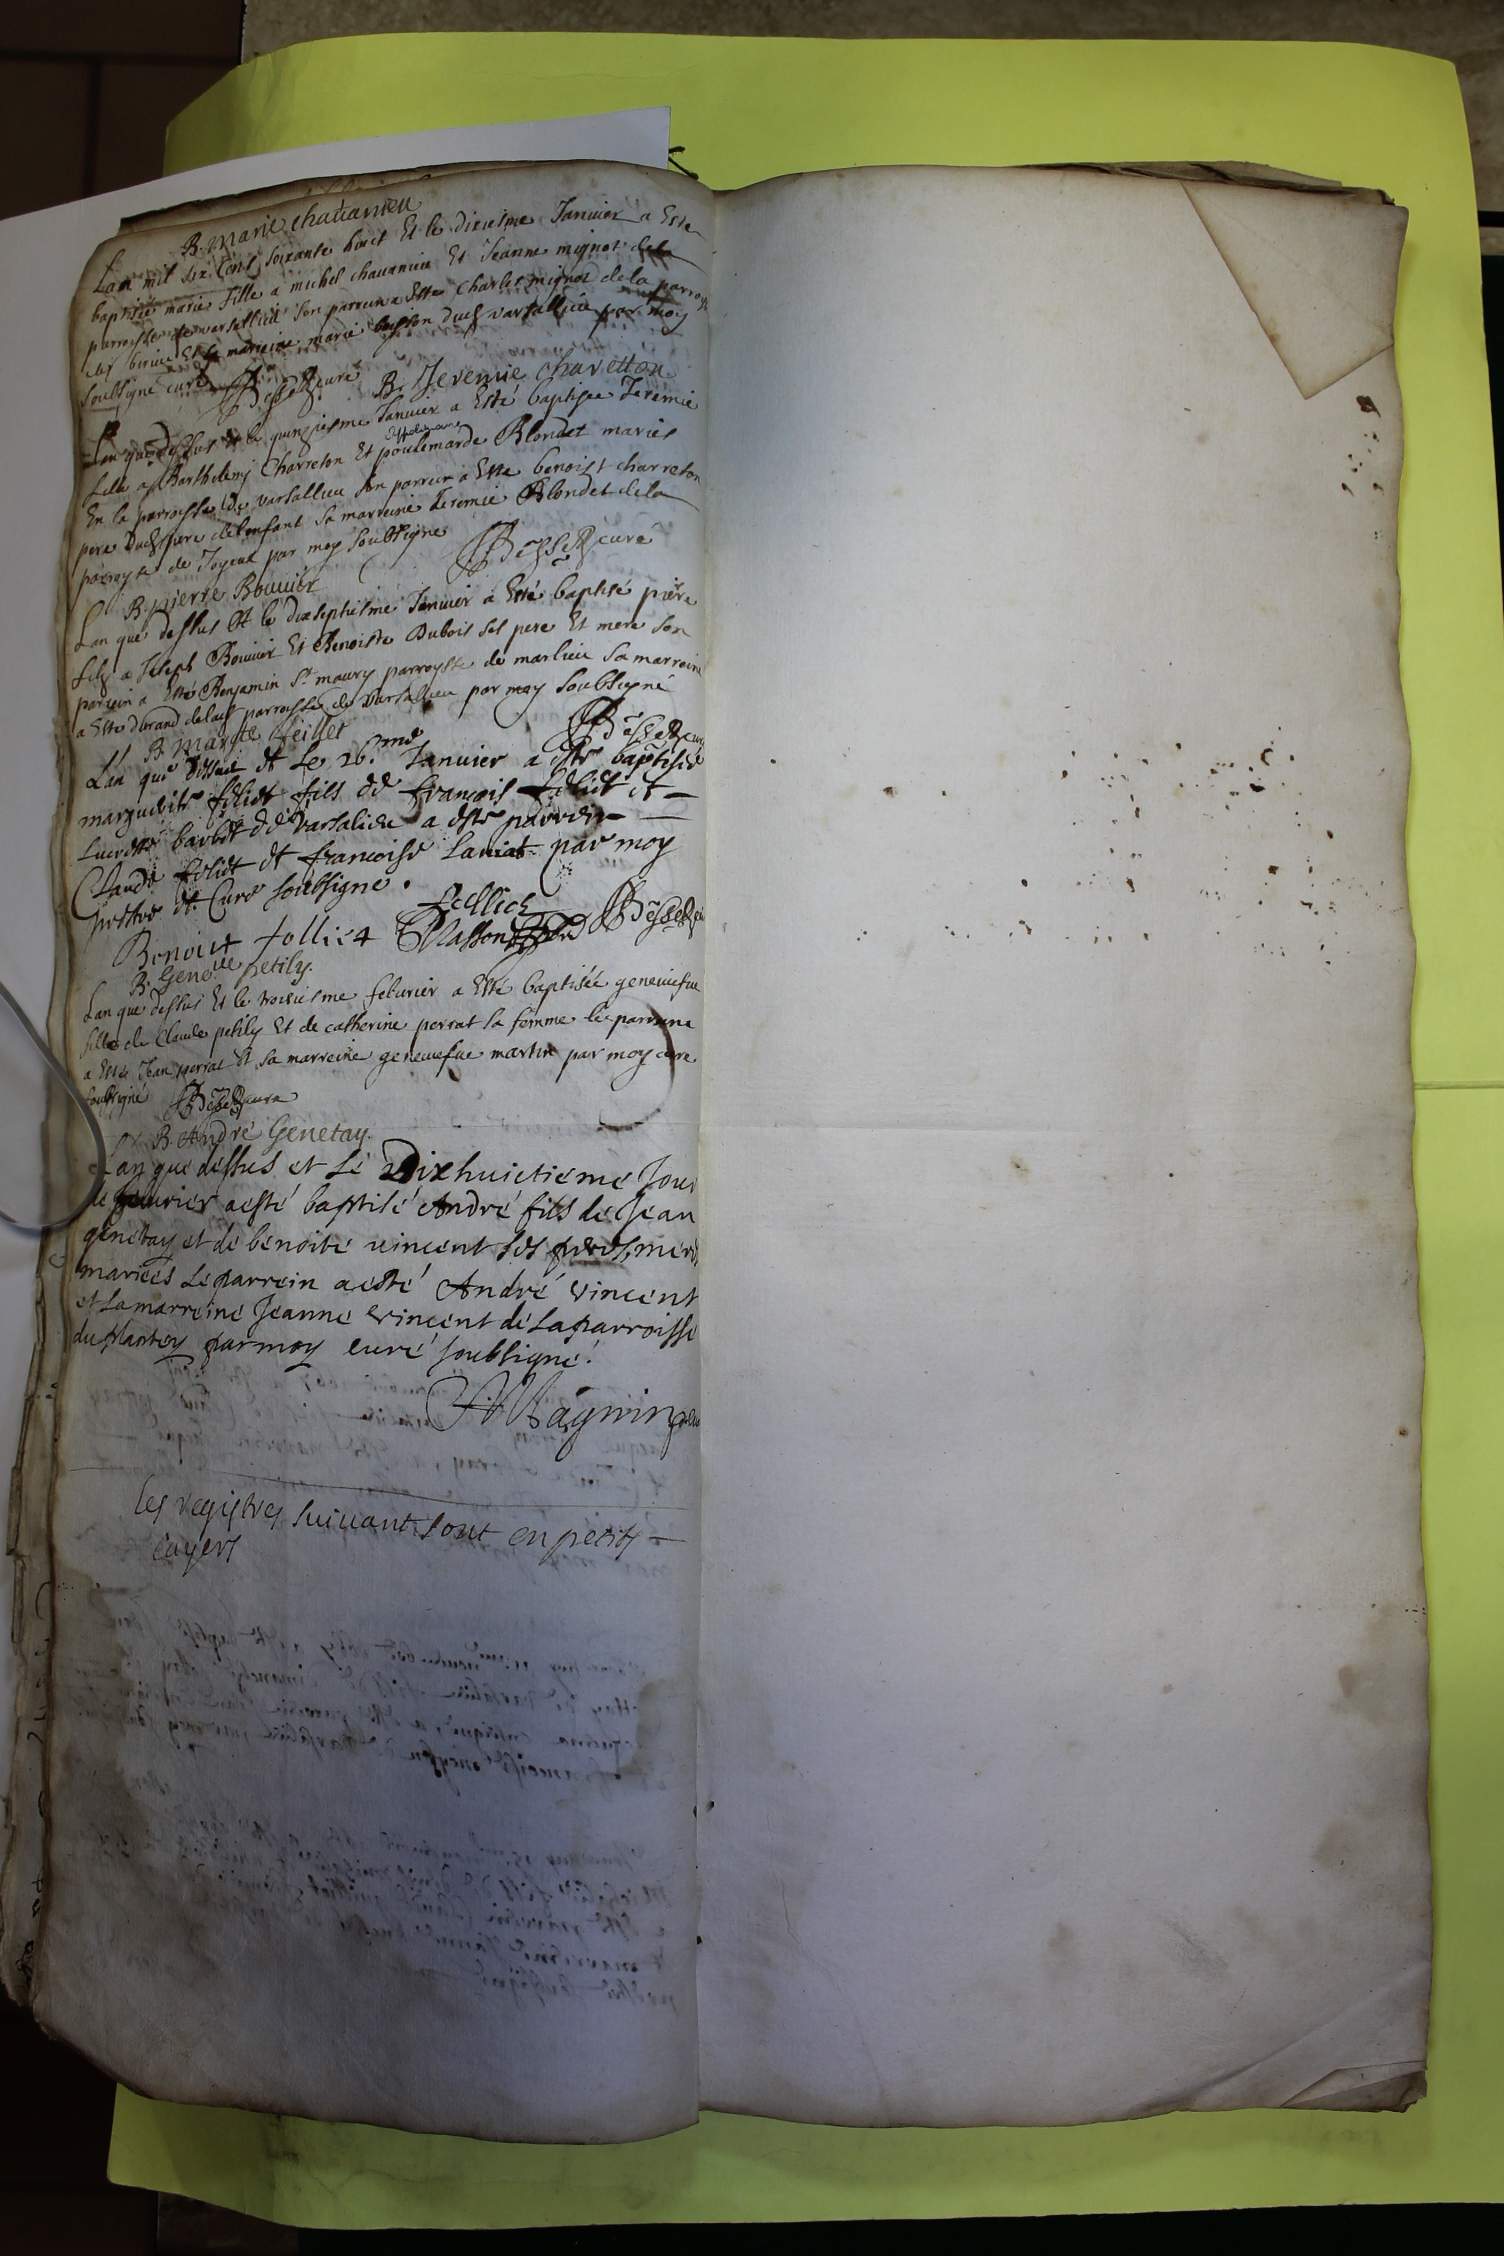 B. Marie chavanieu
L'an mil six cens soixante huict Et le dixiesme Janvier a Este
baptisée marie fille a michel chavanieu Et Jeanne mignot de la
parroysse de varsallieu son parrein a Este Charles mignot de la parroys
Et sa marreine marie du varsallieu par moy
soubsigné curé curé
B. Jeremie charetton
L'an que dessus Et le quinziesme Janvier a Esté baptisee Jeremie
fille a Barthelemy Charreton Et poulemarde Blondet mariés
En la parroisse de varsallieu son parrein a Este benoist charreton
pere dud pere de l'enfant sa marreine Jeremie Blondet de la
parroysse de Joyeux par moy soubsigné curé
B. pierre Bouvier
L'an que dessus Et le dixseptiesme Janvier a Esté baptisé pierre
filz a Joseph Bouvier Et Benoiste Dubois ses pere Et mere son
parrein a Esté Benjamin St maury parroysse de marlieu sa marreine
a Este durand parroisse de varsallieu par moy soubsigné
B. Margte feillet
L'an que dessus et le 26.me Janvier a este baptisée
marguerite foliet fils de françois foliet et
Lucresse barbet de varsalieu a este parrein
Claude foliet et francoise Laniat par moy
prestre et Curé soubsigné.
Benoist folliet
B. Geneve petily.
L'an que dessus Et le troisiesme febvrier a Esté baptisée geneviefve
fille de Claude petily Et de catherine perrat sa femme le parrein
a Este Jean perrat Et sa marreine geneviefve martin par moy cure
soubsigné curé
B. André Genetay.
L'an que dessus et le Dixhuictieme Jour
de febvrier a esté baptisé André fils de Jean
genetay et de benoite vincent ses peres, meres
mariées Le parrein a esté André vincent
et La marreine Jeanne vincent de La parroisse
du plantey par moy curé soubsigné.
Magnin
les registres suivant sont en petits
cayers